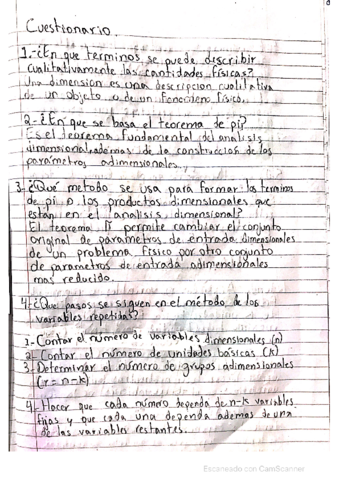 Cuestionario.
1.-¿En que terminos se puede describir
cualitativamente las cantidades físicas?
Una dimensión es una descripcion cualitativa
de un objeto o de un fenomeno físico.
2-¿En que se basa el teorema de pi?
Es el teorema fundamental del analisis
dimensional, ademas de la construccion de los
parámetros adimensionales.
3-¿Qué metodo se usa para formar la terminos
de pi o los productos dimensionales que
estan en el analisis dimensional?
El teorema π permite cambiar el conjunto
original de parametros de entrada dimensionales
de un problema físico por otro conjunto
de parametros de entrada adimensionales
mas reducido.
4-¿Que pasos se siguen en el método de los
variables repetidas?
1- Contar el número de variables dimensionales (n)
2- Contar el número de unidades básicas (k)
3- Determinar el número de grupos adimensionales
(r=n-k)
4- Hacer que cada número dependa de n-k variables
fijas y que cada una dependa ademas de una
de las variables restantes.
Escaneado con CamScanner